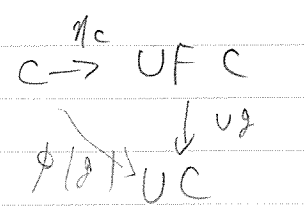 ηc
C → UFC
↓ Ug
φ(g) UC